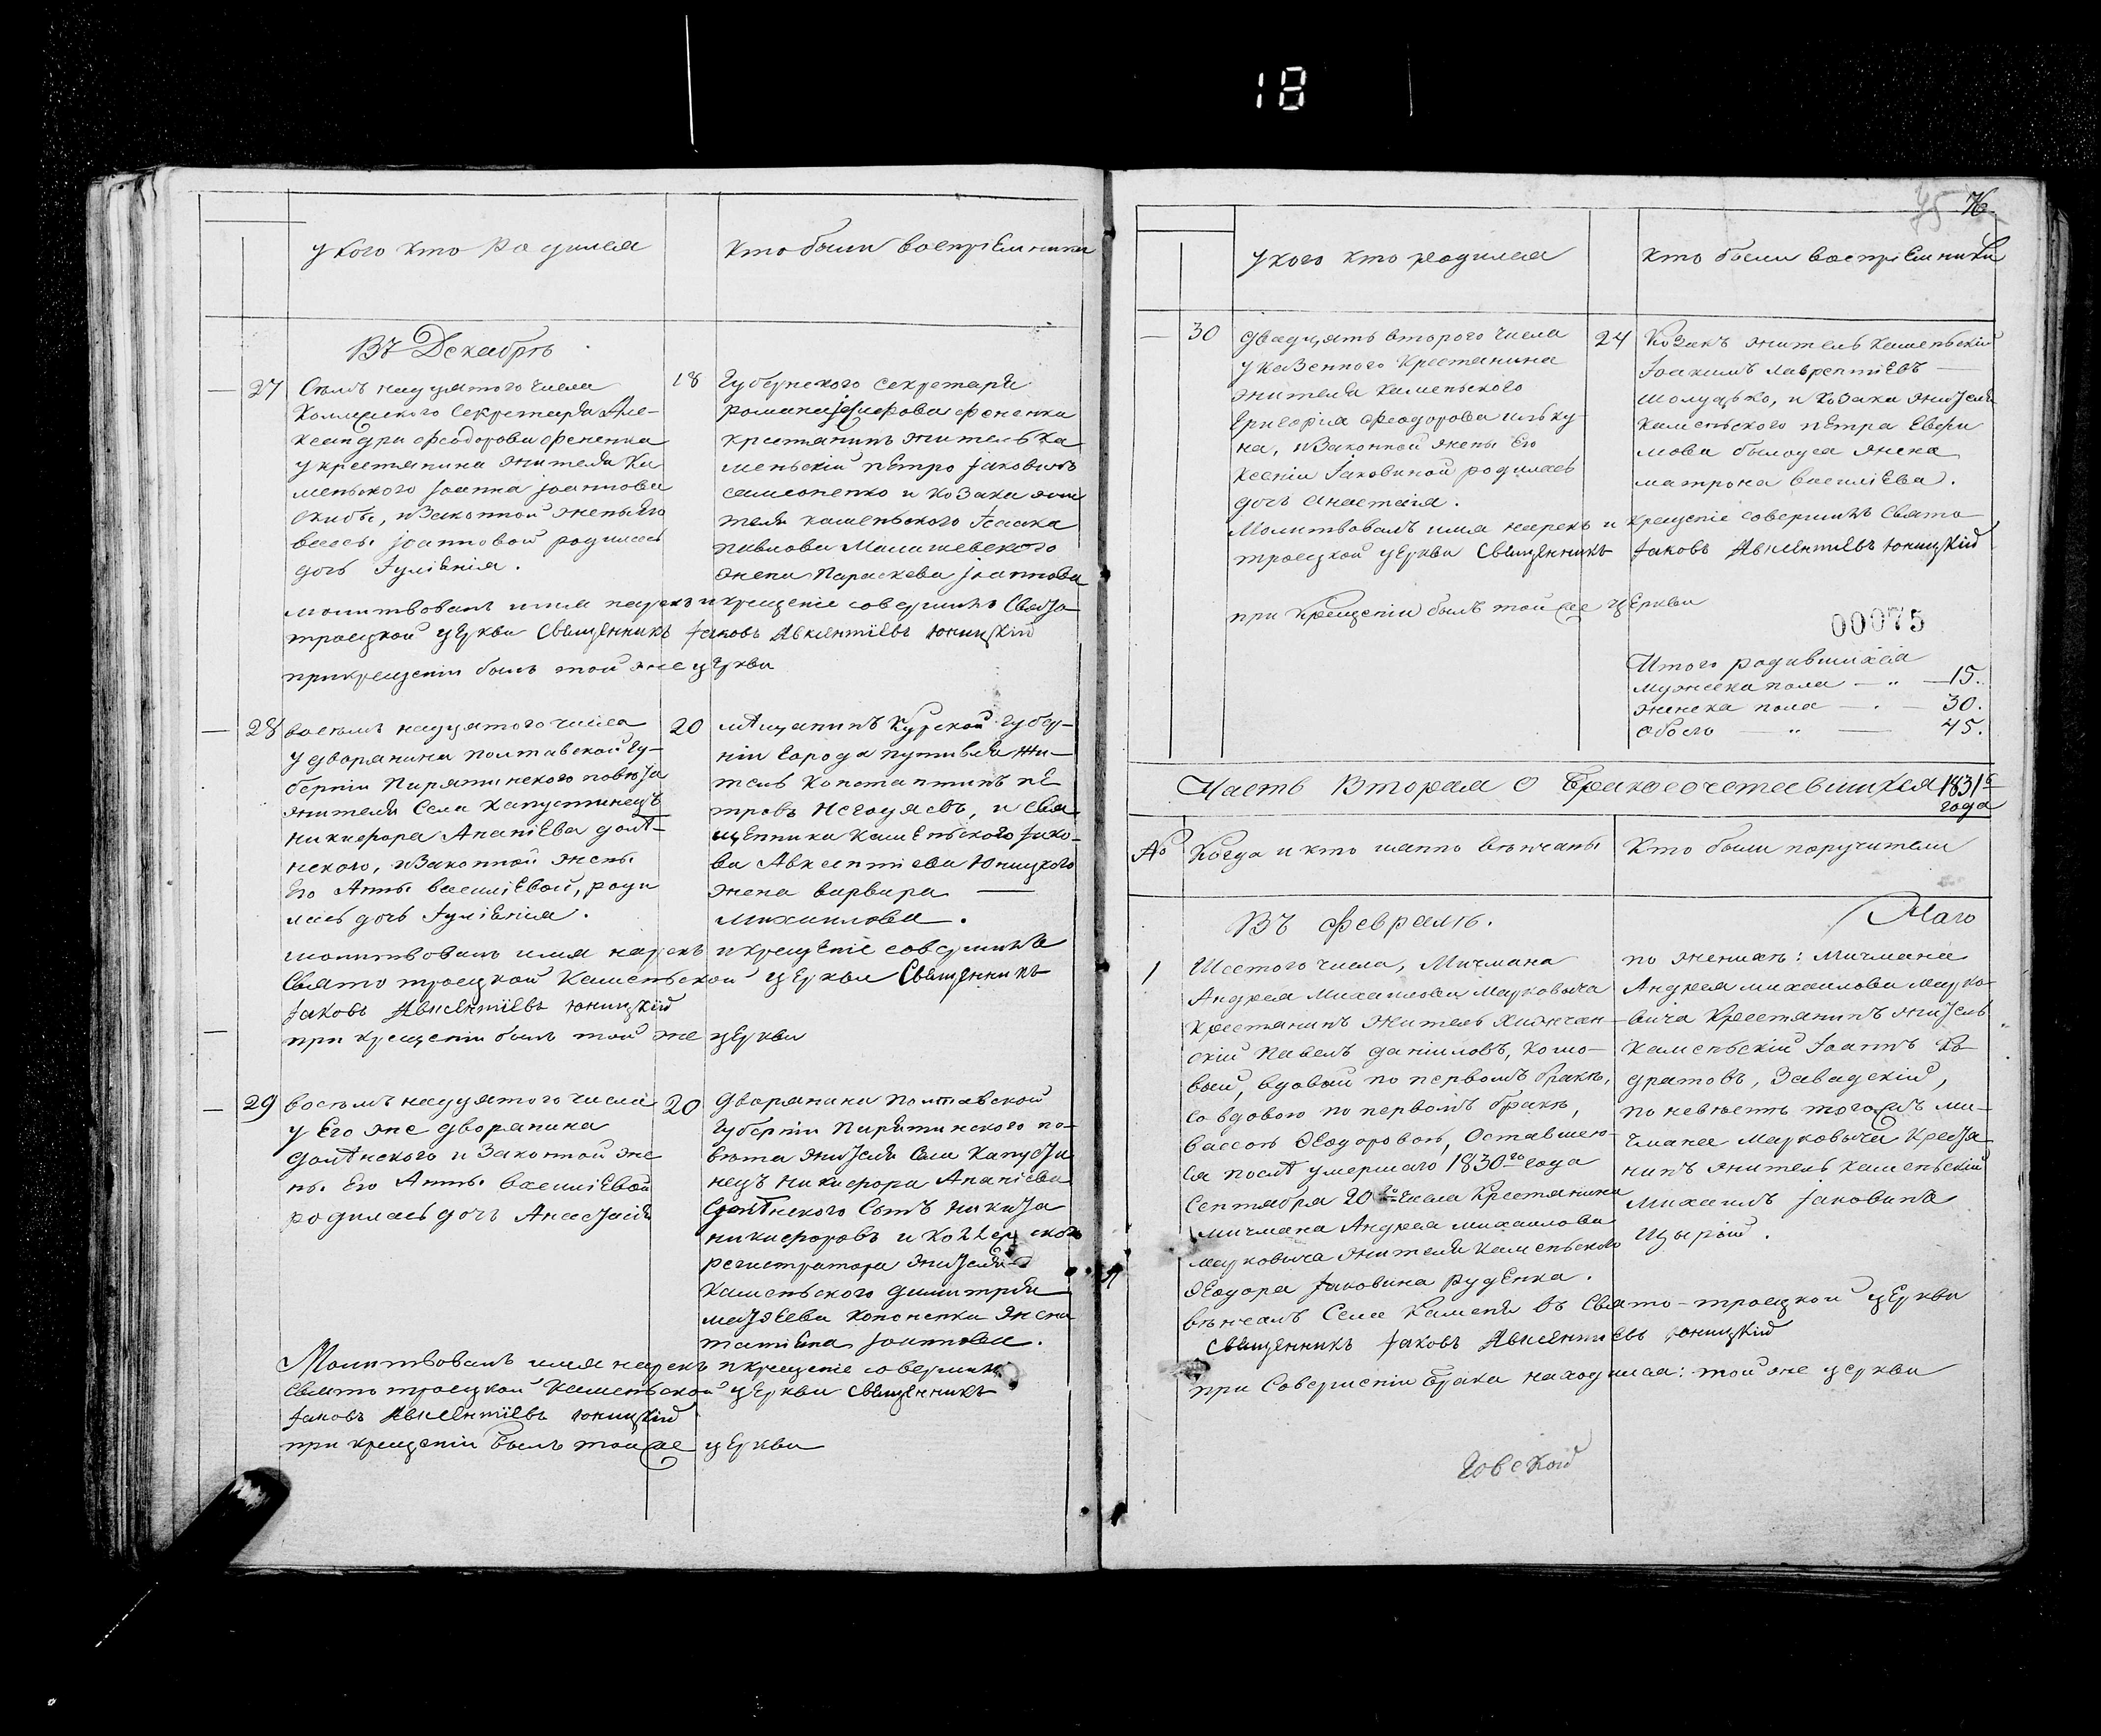 18
у кого кто родился
кто были воспрiемники
Въ Декабрѣ
27
Семъ надцятого числа
Коллежского Секретаря Але-
ксандри Феодорови Фененка
у крестянина жителя Ка
меньского Iоанна Iоаннова
Скибы, изаконной жены Его
Вассы Iоанновой родилась
дочь Iулiанiя.
18
Губернского Секретаря
романа Фененка
крестянинъ жителъ Ка
меньскiй пЕтро Iаковлевъ
Самсоненко и коЗака жи
теля каменьского Iсаака
павлова Малашевского
жена Параскева Iоаннова
молитвовалъ имя нарекъ и крещенiе совершилъ Свято
троецкой цЕркви СвященникЪ Iаковъ Авксентiевъ Юницкiй
при крещенiи былъ той же цЕркви
28
восемъ надцятого числа
у дворянина полтавской Гу-
бернiи Пирятинского повѣта
жителя Села Капустинецъ
никифора АнанiЕва
нского, изаконной жены
Его Анны ВасилiЕвой, роди
лась дочь Iулiанiя.
20
мѣщанинъ Курской губер-
нiи города путивля жи-
тель Константинъ пЕ
тровъ Негодяевъ, и свя
щЕнника КамЕньского Iако-
ва Авксентiева Юницкого
жена варвара
Михаилова.
молитвовалъ имя нарекъ и крещенiе совершилъ
Святотроецкой Каменьской цЕркви СвященникЪ
Iаковъ Авксентiевъ Юницкiй
при крещенiи былъ той же цЕркви
29
восемъ надцятого числа
у Его же дворянина
и Законной же
ны Его Анны ВасилiЕвой
родилась дочь Анастасiя
20
дворянина полтавской
Губернiи Пирятинского по-
вѣта жителя Села Капусти
нецъ никифора Ананiева
Сынъ никита
никифоровъ и Коллежского
регистратора жителя
Каменьского димитрiя
Кононенка жена
татiЕна Iоаннова.
Молитвовалъ имя нарекъ и крещенiе совершилъ
Святотроецкой Каменьской цЕркви СвященникЪ
Iаковъ Авксентiевъ Юницкiй
при крещенiи былъ той же цЕркви
75 76.
у кого кто родился
кто были воспрiемники
30
двадцять второго числа
у каЗенного крестянина
жителя каменьского
Григорiя Феодорова
на, изаконной жены Его
Ксенiи Iаковлевой родилась
дочь Анастасiя.
24
КоЗакъ жителъ Каменьскiй
Iоакимъ лаврентiЕвъ
и коЗака жителя
Каменьского пЕтра
мова былоуса жена
матрона ВасилiЕва.
Молитвовалъ имя нарекъ и крещенiе совершилъ Свято
троецкой цЕркви СвященникЪ Iаковъ Авксентiевъ Юницкiй
при крещенiи былъ той же цЕркви
00075
Итого родившихся
мужеска пола — „ — 15.
женска пола — . — 30.
обоего — „ — 45.
Часть Вторая о Бракосочетавшихся 1831
года
№ Когда и кто имянно вѣнчаны
Кто были поручители
Въ Февралѣ.
1
Шестого числа, Мичмана
Андрея Михаилова Марковича
крестянинъ жителъ
скiй Павелъ данiиловъ,
вый, вдовый по первомъ бракѣ,
со вдовою по первомъ бракѣ,
Вассою Ѳеодоровою, Оставшею-
ся послѣ умершаго 1830го года
Сентября 20го числа Крестянина
Мичмана Андрея Михаилова
марковича жителя Каменьского
Ѳеодора Iаковлева рудЕнка.
по женихѣ: мичмана
Андрея михаилова марко-
вича крестянинъ житель
Каменьскiй Iоаннъ Ко-
дратовъ, Завадскiй,
по невѣстѣ того жъ ми-
чмана Марковича Кре
нинъ жителъ каменьскiй
Михаилъ Iаковлевъ
Цырый.
вѣнчалъ Села Каменя въ Свято-троецкой цЕркви
священникъ Iаковъ Авксентiевъ Юницкiй
при Совершенiи Брака находился: той же церкви